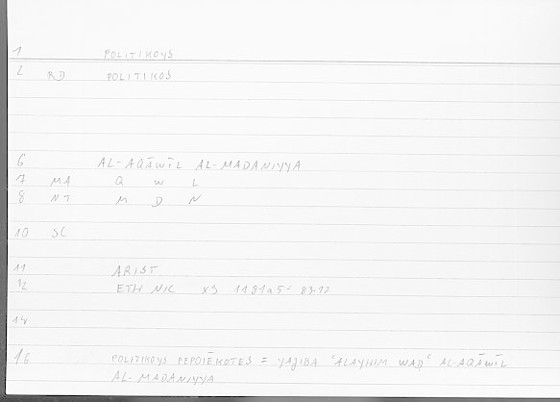 1 POLITIKOYS
2 RD POLITIKOS
6 AL-AQĀWĪL AL-MADANIYYA
7 MA Q W L
8 NT M D N
10 SC
11 ARIST
12 ETH NIC XS 1181a5
14
16 POLITIKOYS PEPOIĒKOTES = YAJIBA ʿALAYHIM WADʿ AL-AQĀWĪL
AL-MADANIYYA